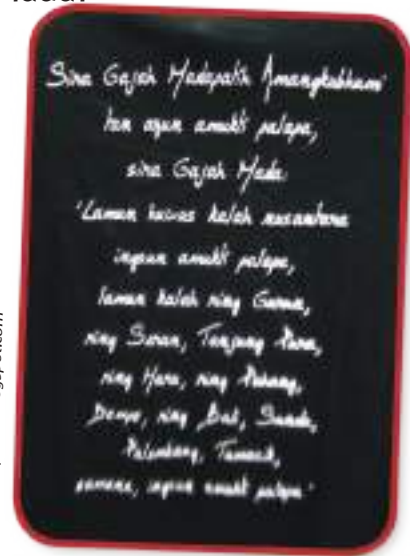 Sira Gajah Madapatih Amangkubhumi
tan ayun amukti palapa,
sira Gajah Mada
'Lamun huwus kalah nusantara
ingsun amukti palapa,
lamun kalah ring Gurun,
ring Seran, Tanjung Pura,
ring Haru, ring Pahang,
Dompo, ring Bali, Sunda,
Palembang, Tumasik,
samana, ingsun amukti palapa'